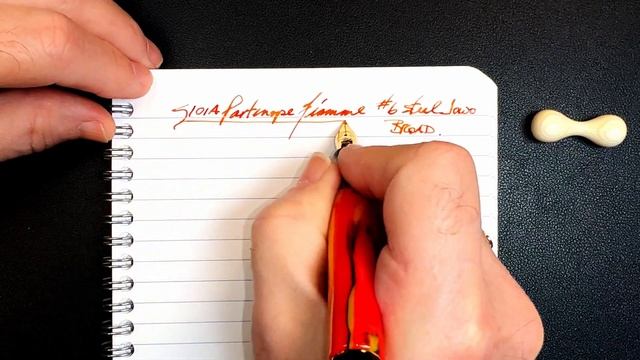 GIOIA Partenope Fiamme #6 steel Jowo
BROAD.